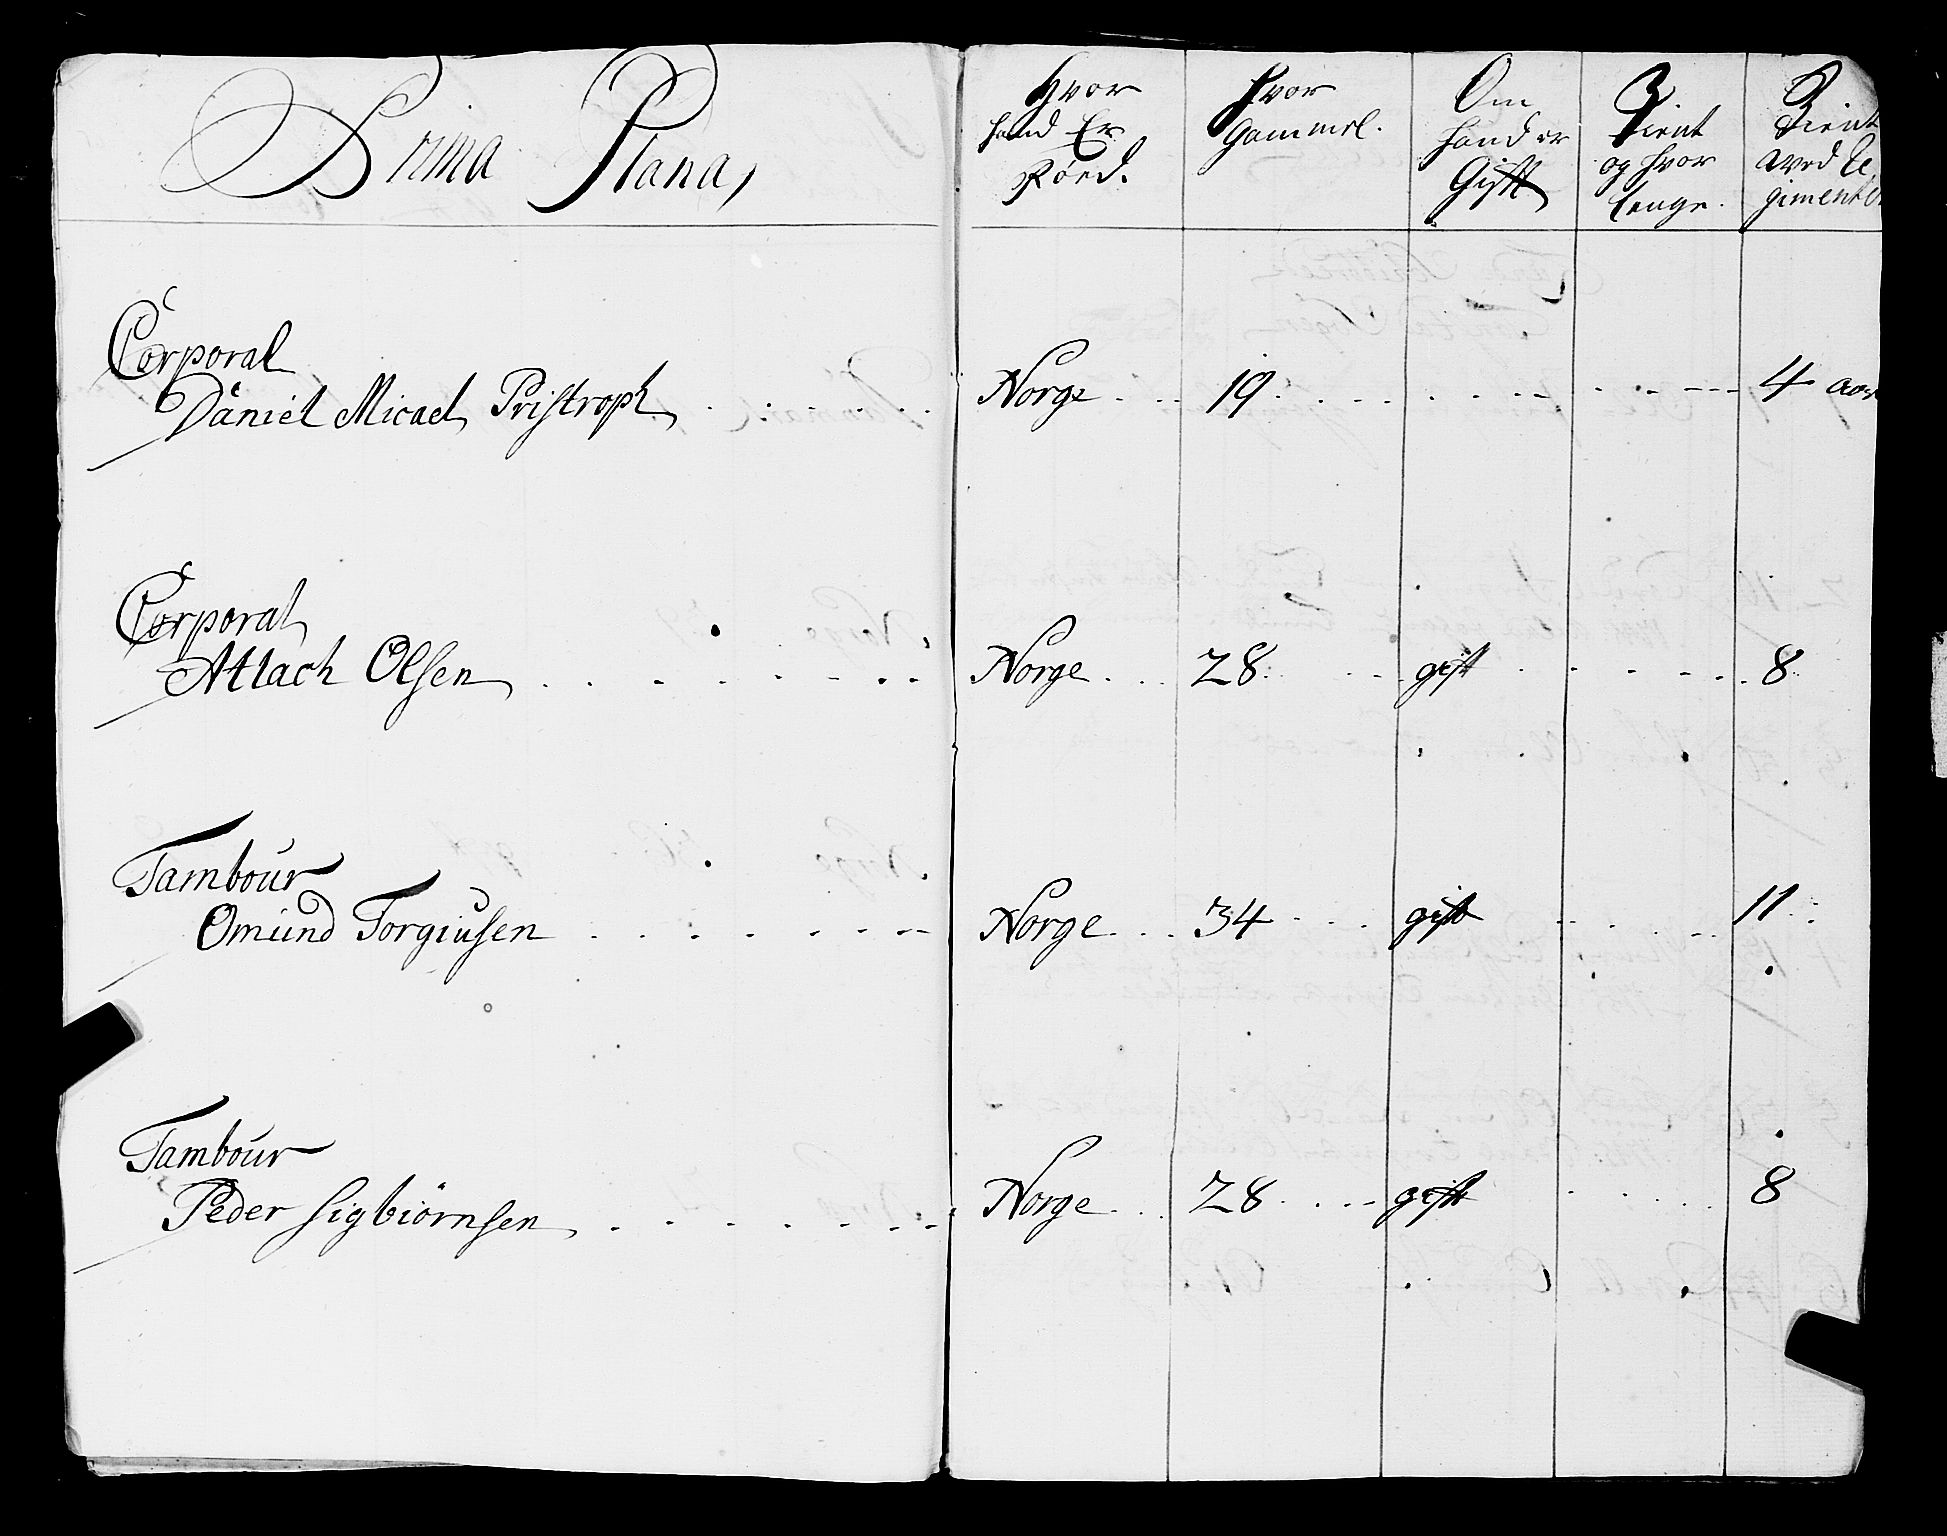 Prima Plana,
Hvor hand Er Föed.
Hvor Gammel.
Om hand er Gifft
Tient og hvor lenge.
Tient ved Re, gimentet
Corporal
Daniel Micael Pristroph Norge 19 4 aar
Corporal
Atlach Olsen Norge 28 gift 8
Tambour
Omund Torgiusen Norge 34 gift 11
Tambour
Peder Sigbiörnsen Norge 28 gift 8